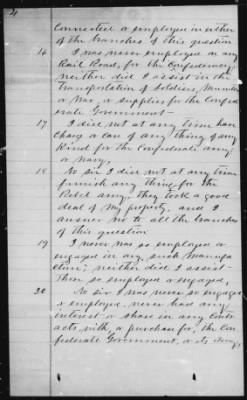 4
Connected or employed in either
of the branches of this question
16 I was never employed on any
Rail Road, for the Confederacy,
neither did I assist in the
Transportation of Soldiers, Munitions
of War, or supplies for the Confed
erate Government—
17 I did not at any time have
charge or care of any thing of any
Kind for the Confederate army
or navy,
18 No sir I did not at any time
furnish any thing for the
Rebel army, they took a good
deal of my property, and I
answer no to all the branches
of this question
19 I never was so employed or
engaged in any such manufa
cture; neither did I assist
those so employed or engaged,
20 No sir I was never so engaged
or employed. never had any
interest or share in any contr
acts, with, or purchase for, the Con
federate Government, or its